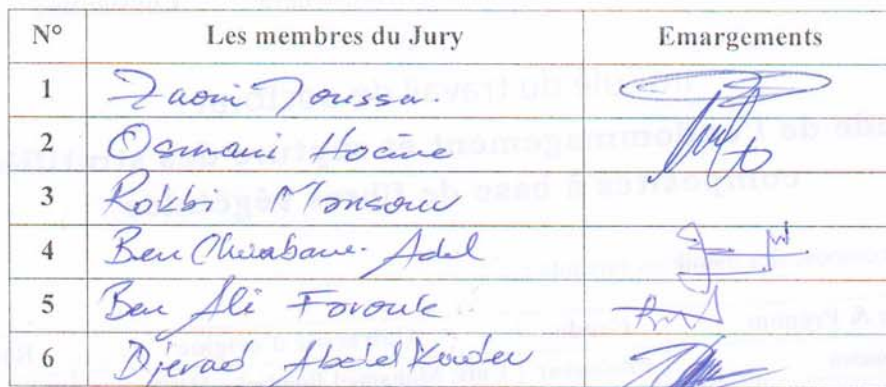 N° Les membres du Jury Emargements
1 Zaoui Moussa.
2 Osmani Hocine
3 Rokbi Mansour
4 Ben Adel
5 Ben Ali Farouk
6 Djerad Abdelkader